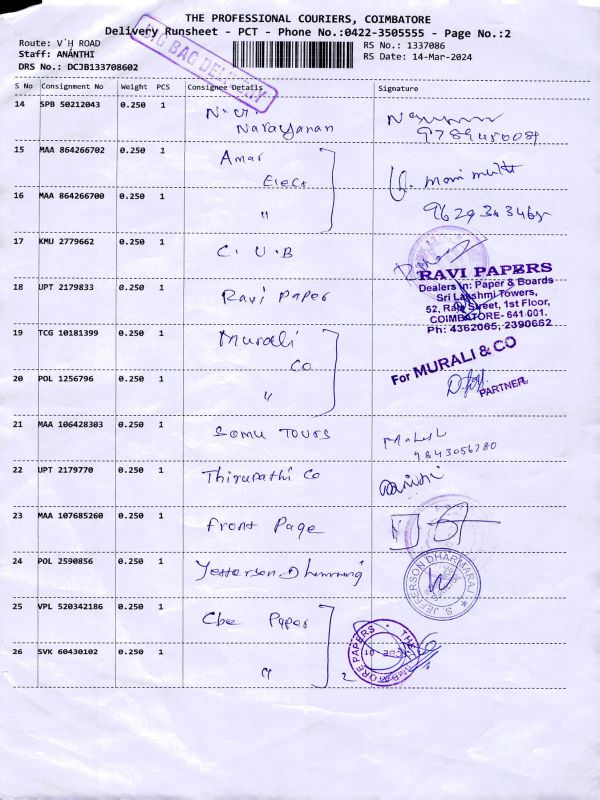 THE PROFESSIONAL COURIERS, COIMBATORE
Delivery Runsheet - PCT - Phone No.:0422-3505555 - Page No.:2
Route: V'H ROAD
RS No.: 1337086
Staff: ANANTHI
RS Date: 14-Mar-2024
DRS No.: DCJB133708602
BAG DELIVERY
S No Consignment No Weight PCS Consignee Details Signature
14 SPB 50212043 0.250 1
Narayanan
15 MAA 864266702 0.250 1 Amar
Elecs
16 MAA 864266700 0.250 1 "
17 KMU 2779662 0.250 1 C.U.B
18 UPT 2179833 0.250 1 Ravi Paper
RAVI PAPERS
Dealers in: Paper & Boards
Sri Lakshmi Towers,
52, Raja Street, 1st Floor,
COIMBATORE- 641 001.
Ph: 4362065, 2390662
19 TCG 10181399 0.250 1 Murali
Co
For MURALI & CO
PARTNER
20 POL 1256796 0.250 1 "
21 MAA 106428303 0.250 1 Somu Tours
9843056280
22 UPT 2179770 0.250 1 Thirupathi Co
23 MAA 107685260 0.250 1 Front Page
24 POL 2590856 0.250 1 Jefferson
S. JEFFERSON DHARMARAJ
25 VPL 520342186 0.250 1 Cbe Paper
26 SVK 60430102 0.250 1 "
2